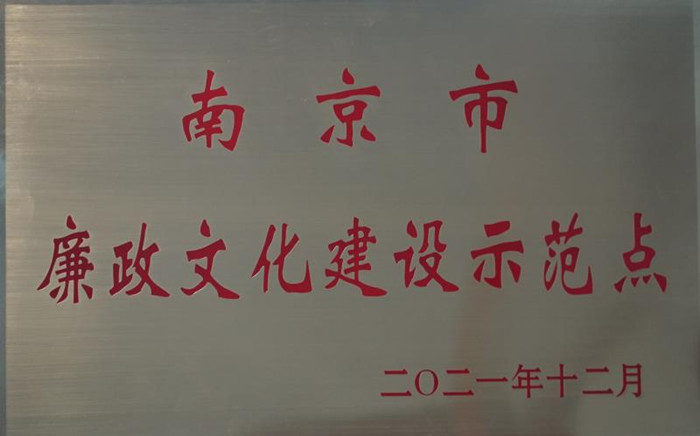 南京市
廉政文化建设示范点
二〇二一年十二月